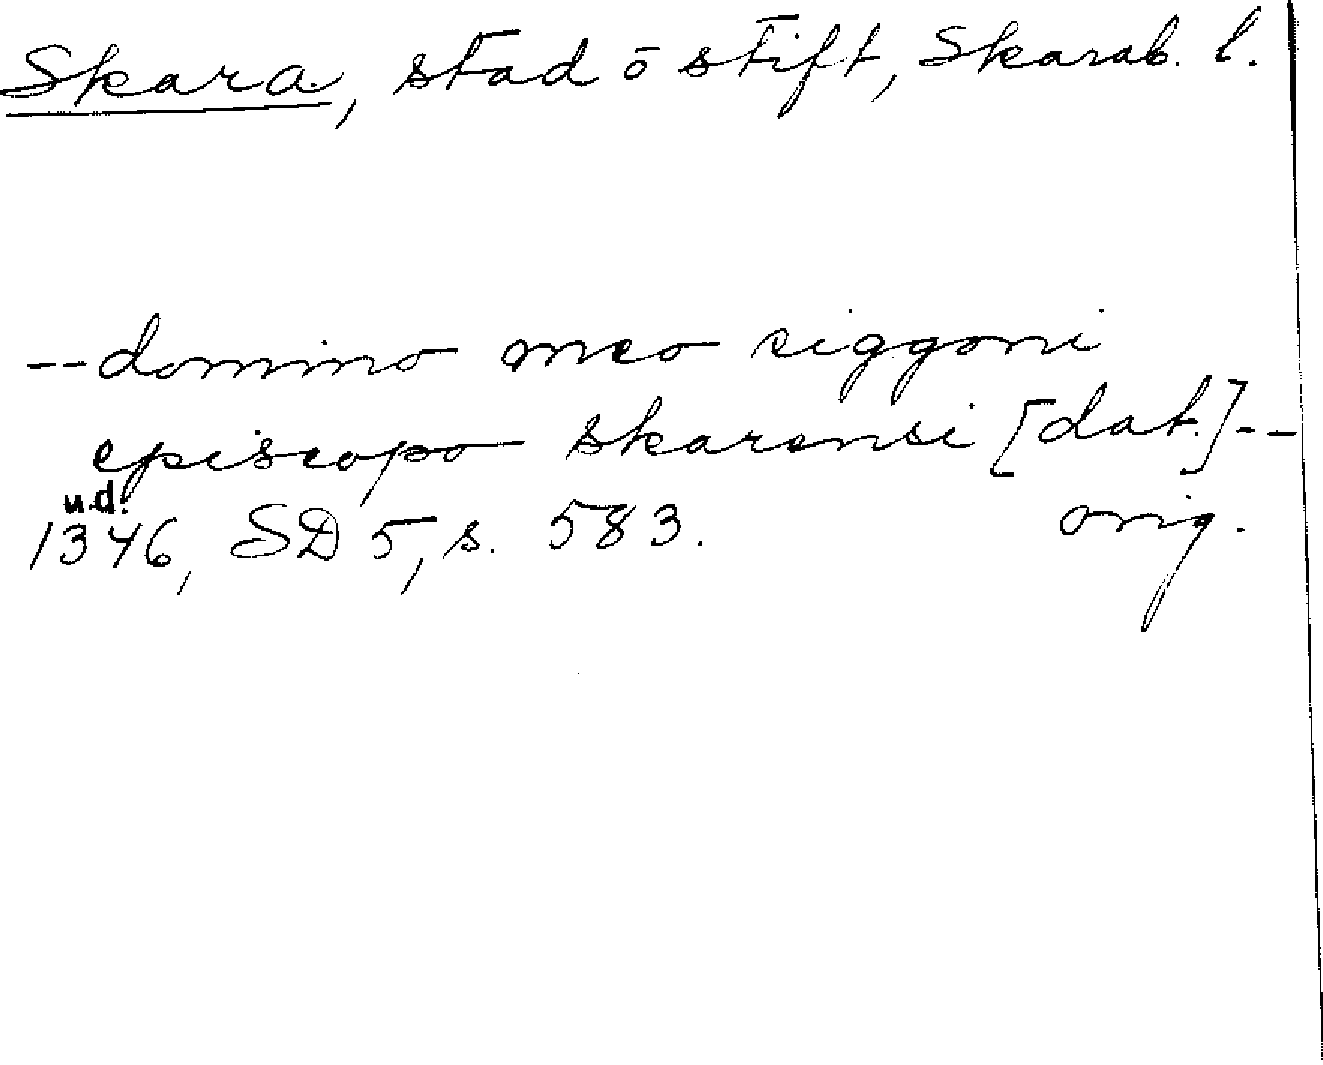 Skara, stad ō stift, Skarab. l.
--domino meo siggoni
episcopo skarensi [dat.]--
u.d.
1346, SD 5, s. 583. orig.